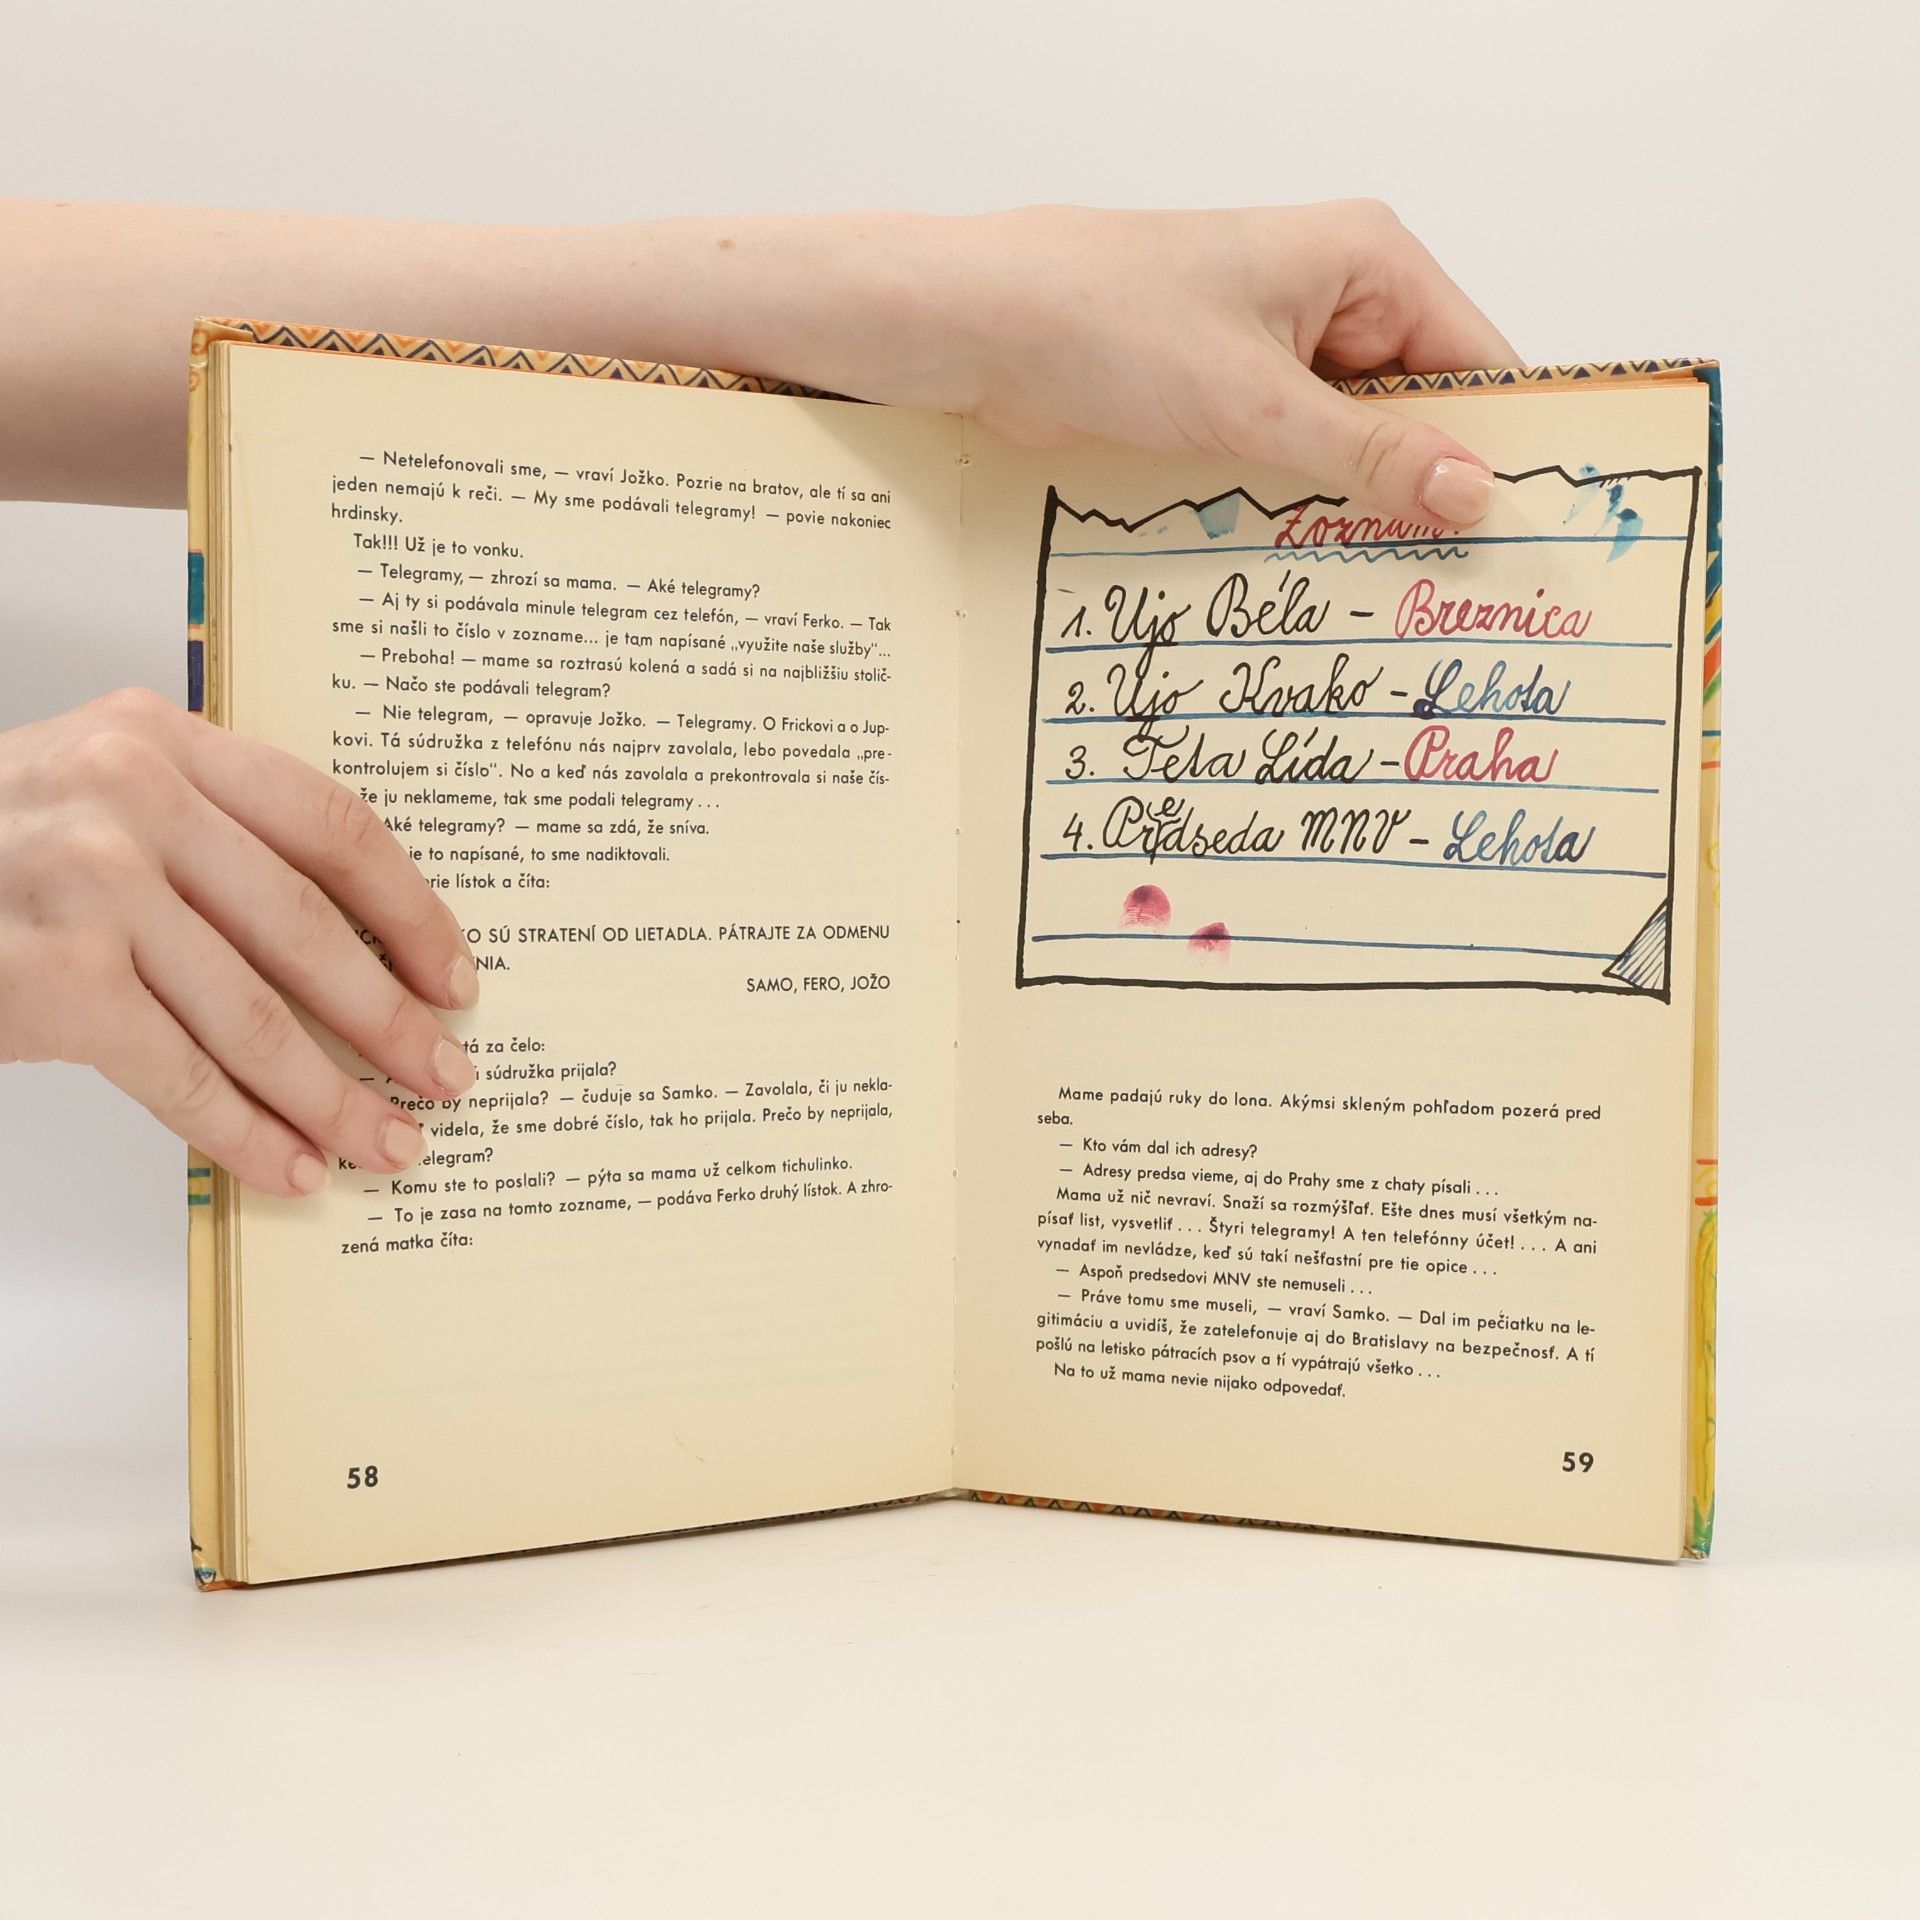 — Netelefonovali sme, — vraví Jožko. Pozrie na bratov, ale tí sa ani
jeden nemajú k reči. — My sme podávali telegramy! — povie nakoniec
hrdinsky.
Tak!!! Už je to vonku.
— Telegramy, — zhrozí sa mama. — Aké telegramy?
— Aj ty si podávala minule telegram cez telefón, — vraví Ferko. — Tak
sme si našli to číslo v zozname... je tam napísané „využite naše služby"...
— Preboha! — mame sa roztrasú kolená a sadá si na najbližšiu stolič-
ku. — Načo ste podávali telegram?
— Nie telegram, — opravuje Jožko. — Telegramy. O Frickovi a o Jup-
kovi. Tá súdružka z telefónu nás najprv zavolala, lebo povedala „pre-
kontrolujem si číslo". No a keď nás zavolala a prekontrolovala si naše čís-
že ju neklameme, tak sme podali telegramy . . .
Aké telegramy? — mame sa zdá, že sníva.
je to napísané, to sme nadiktovali.
lístok a číta:
SÚ STRATENÍ OD LIETADLA. PÁTRAJTE ZA ODMENU
SAMO, FERO, JOŽO
za čelo:
súdružka prijala?
Prečo by neprijala? — čuduje sa Samko. — Zavolala, či ju nekla-
videla, že sme dobré číslo, tak ho prijala. Prečo by neprijala,
telegram?
— Komu ste to poslali? — pýta sa mama už celkom tichulinko.
— To je zasa na tomto zozname, — podáva Ferko druhý lístok. A zhro-
zená matka číta:
58
Zoznam:
1. Ujo Béla – Breznica
2. Ujo Kvako – Lehota
3. Teta Lída – Praha
4. Predseda MNV – Lehota
Mame padajú ruky do lona. Akýmsi skleným pohľadom pozerá pred
seba.
— Kto vám dal ich adresy?
— Adresy predsa vieme, aj do Prahy sme z chaty písali . . .
Mama už nič nevraví. Snaží sa rozmýšľať. Ešte dnes musí všetkým na-
písať list, vysvetliť . . . Štyri telegramy! A ten telefónny účet! . . . A ani
vynadať im nevládze, keď sú takí nešťastní pre tie opice . . .
— Aspoň predsedovi MNV ste nemuseli . . .
— Práve tomu sme museli, — vraví Samko. — Dal im pečiatku na le-
gitimáciu a uvidíš, že zatelefonuje aj do Bratislavy na bezpečnosť. A tí
pošlú na letisko pátracích psov a tí vypátrajú všetko . . .
Na to už mama nevie nijako odpovedať.
59